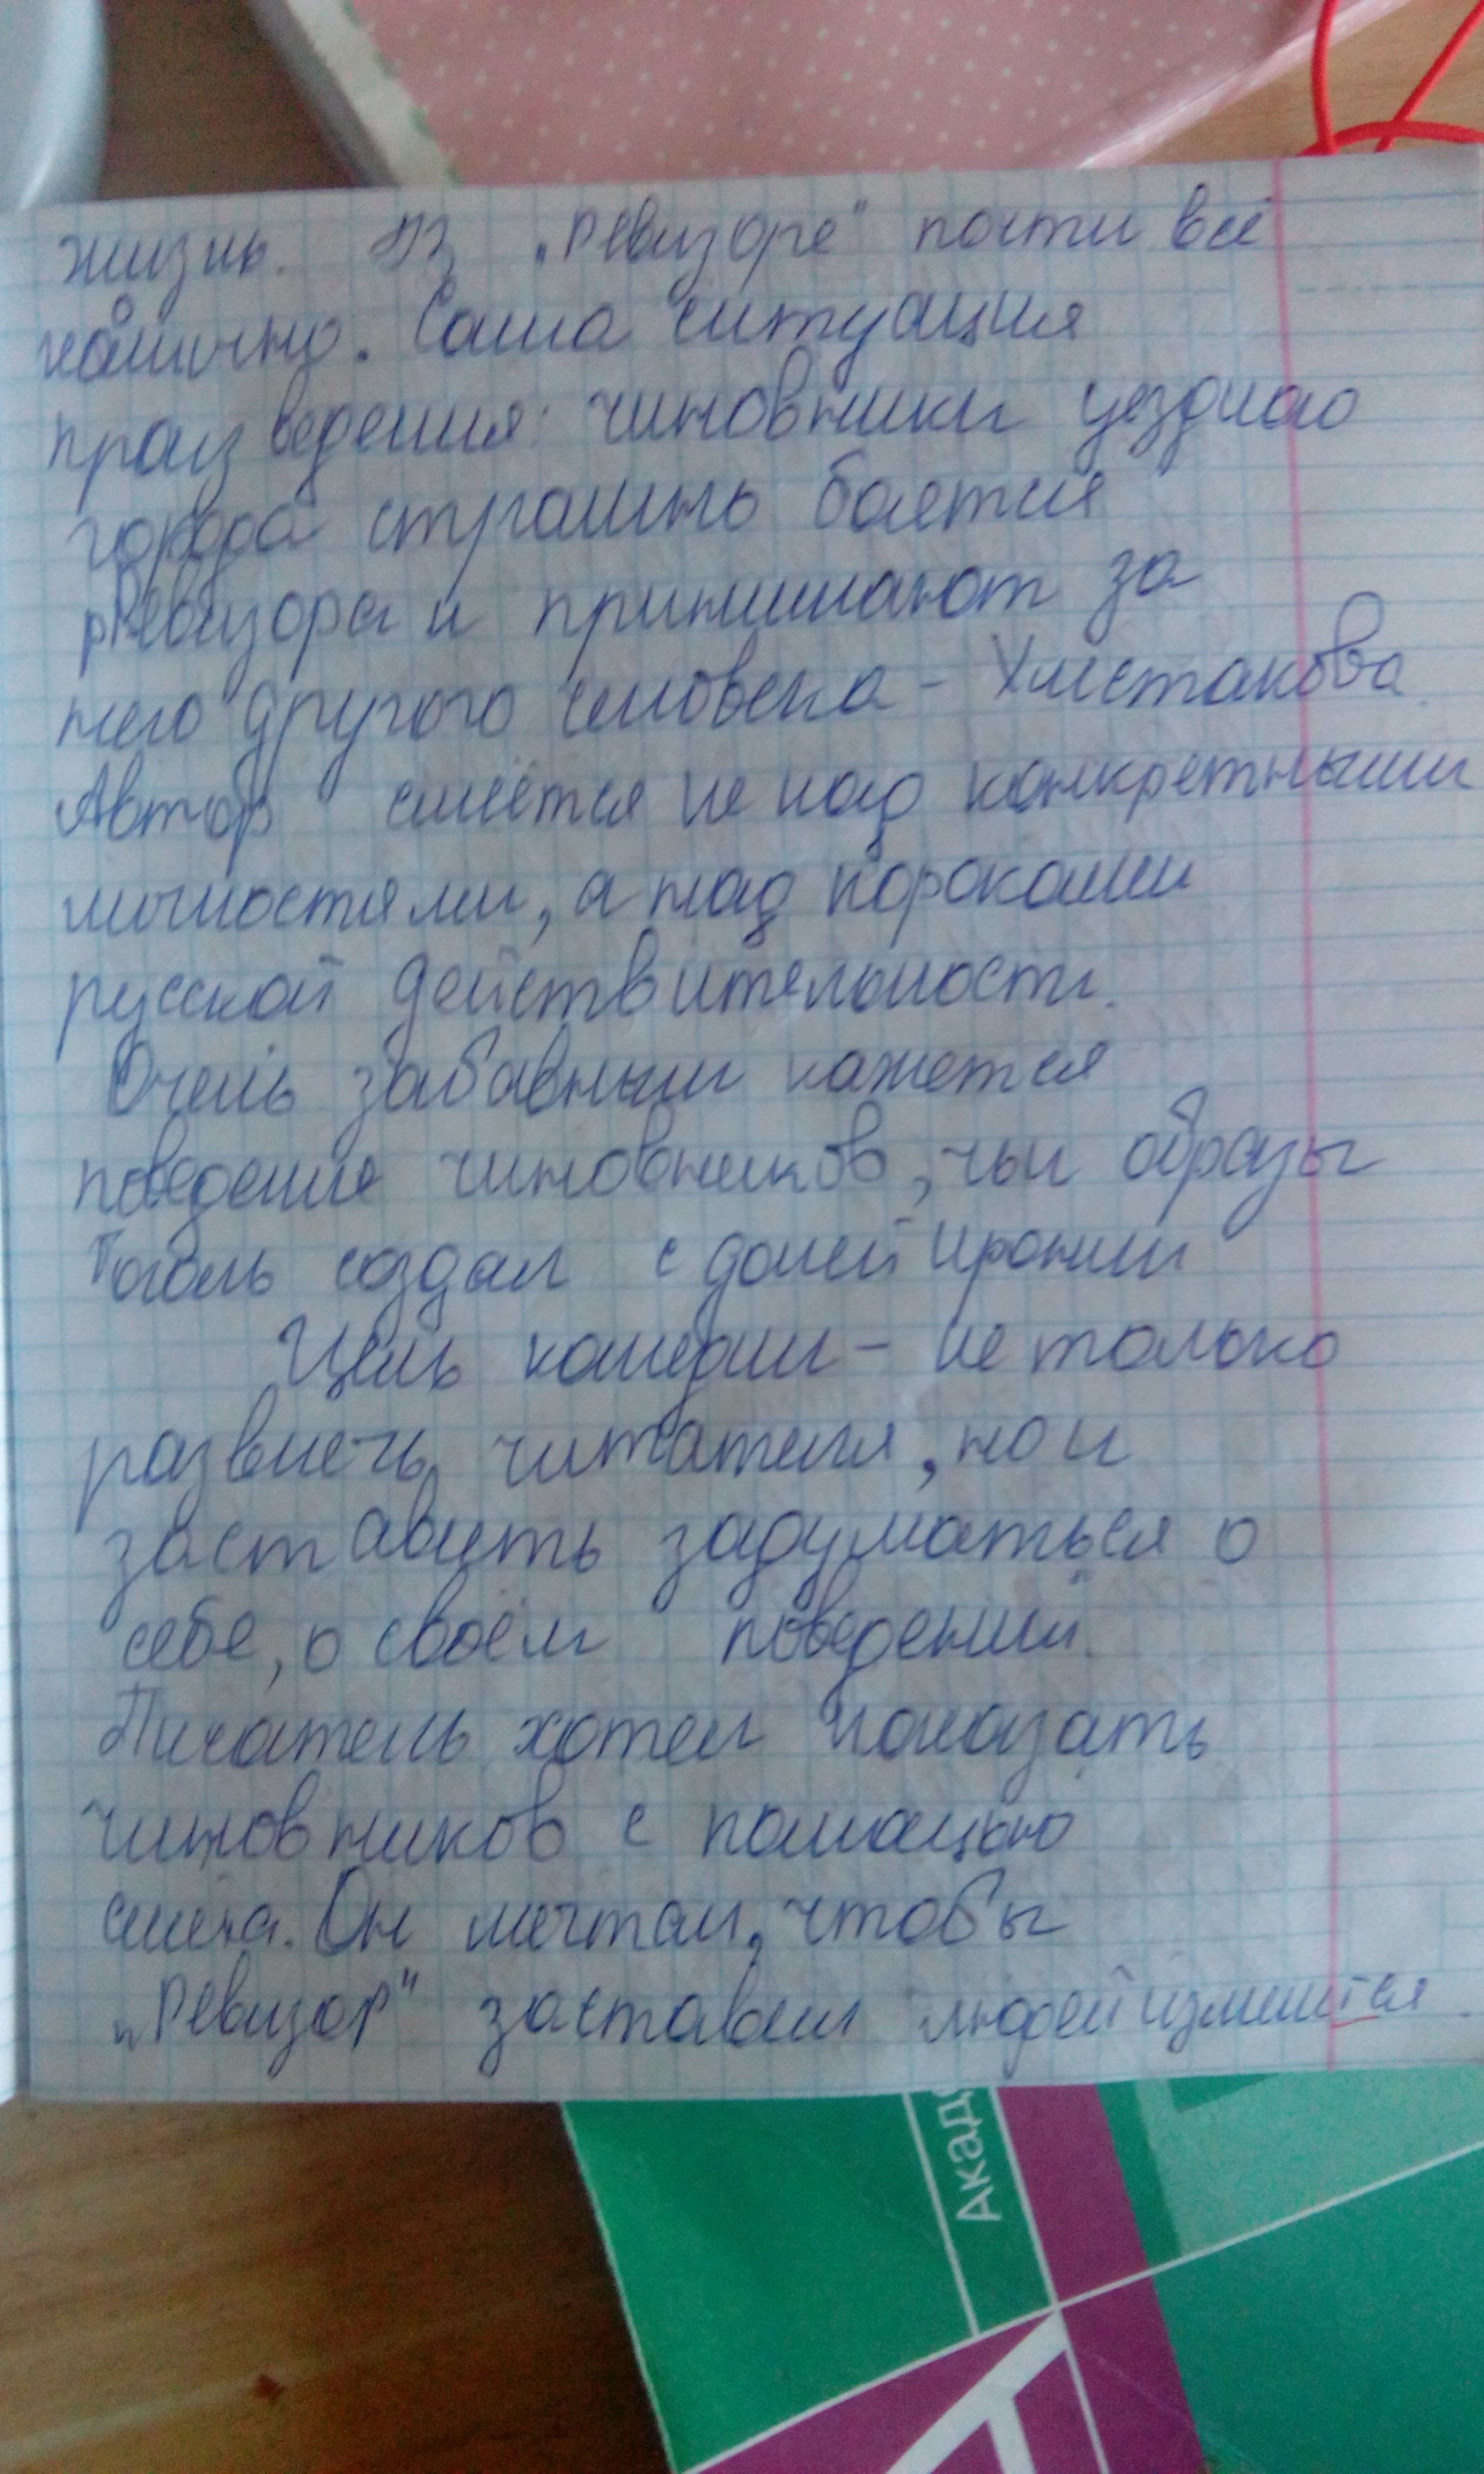 жизнь. В „Ревизоре" почти всё
комично. Сама ситуация
произведения: чиновники уездного
города страшно боятся
ревизора и принимают за
него другого человека - Хлестакова.
Автор смеётся не над конкретными
личностями, а над пороками
русской действительности.
Очень забавным кажется
поведение чиновников, чьи образы
Гоголь создал с долей иронии
Цель комедии - не только
развлечь читателя, но и
заставить задуматься о
себе, о своём поведении.
Писатель хотел показать
чиновников с помощью
смеха. Он мечтал, чтобы
„Ревизор" заставил людей
Акад